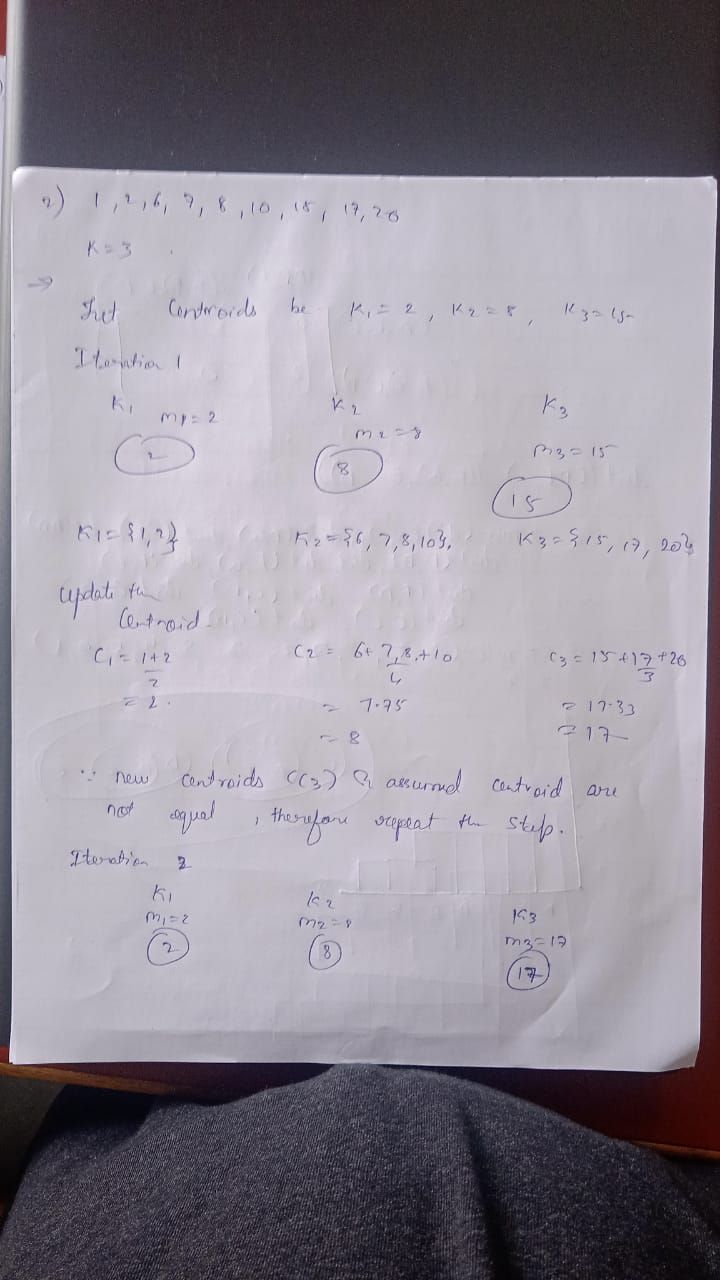 2) 1, 2, 6, 7, 8, 10, 15, 17, 20
K = 3
→
Let Centroids be K₁ = 2, K₂ = 8, K₃ = 15
Iteration 1
K₁ K₂ K₃
m₁ = 2 m₂ = 8 m₃ = 15
2 8 15
K₁ = {1, 2} K₂ = {6, 7, 8, 10}, K₃ = {15, 17, 20}
update the
Centroid
C₁ = 1+2 / 2 C₂ = 6+7,8,+10 / 4 C₃ = 15+17+20 / 3
= 2. = 7.75 = 17.33
= 8 = 17
∵ new centroids C(3) & assumed centroid are
not equal, therefore repeat the step.
Iteration 2
K₁ K₂ K₃
m₁ = 2 m₂ = 8 m₃ = 17
2 8 17